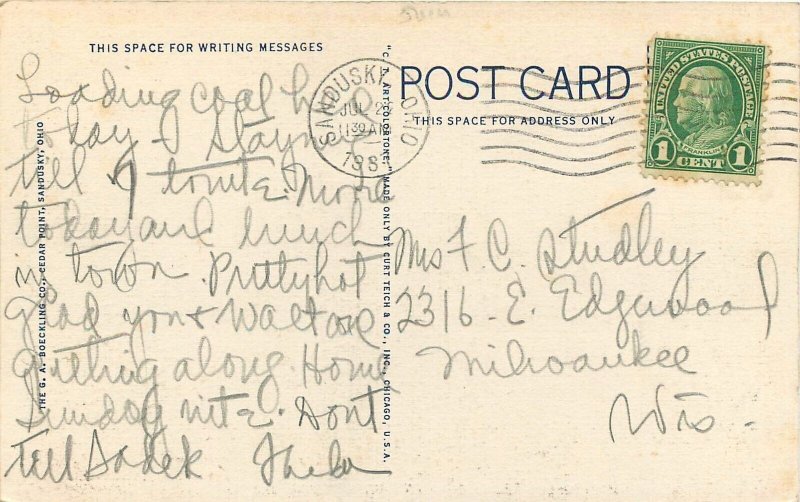 THIS SPACE FOR WRITING MESSAGES
Loading coal here
today Staying
till 9 tonite. Movie
today and lunch
in town. Pretty hot
Glad you & Walt are
getting along. Home
Sunday nite. Dont
tell
THE G. A. BOECKLING CO., CEDAR POINT, SANDUSKY, OHIO
"C. T. ART-COLORTONE" MADE ONLY BY CURT TEICH & CO., INC., CHICAGO, U.S.A.
SANDUSKY OHIO
JUL 2
11 30 AM
193
POST CARD
THIS SPACE FOR ADDRESS ONLY
UNITED STATES POSTAGE
FRANKLIN
1 CENT 1
Mrs F. C. Studley
2316 - E. Edgewood
Milwaukee
Wis.